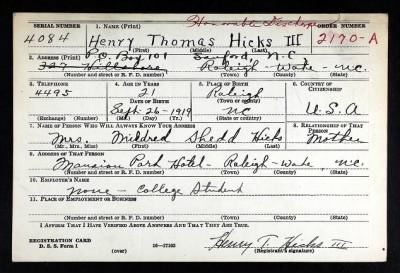 Honorable Discharge
SERIAL NUMBER 1. NAME (Print) ORDER NUMBER
4084 Henry Thomas Hicks III 2170-A
(First) (Middle) (Last)
P.O. Box 101 Sanford, N.C.
2. ADDRESS (Print)
327 Hillsboro Raleigh - Wake - N.C.
(Number and street or R. F. D. number) (Town) (County) (State)
3. TELEPHONE 4. AGE IN YEARS 5. PLACE OF BIRTH 6. COUNTRY OF CITIZENSHIP
4495 21 Raleigh
DATE OF BIRTH (Town or county)
Sept. 26 - 1919 NC U.S.A
(Exchange) (Number) (Mo.) (Day) (Yr.) (State or country)
7. NAME OF PERSON WHO WILL ALWAYS KNOW YOUR ADDRESS 8. RELATIONSHIP OF THAT PERSON
Mrs. Mildred Shedd Hicks Mother
(Mr., Mrs., Miss) (First) (Middle) (Last)
9. ADDRESS OF THAT PERSON
Mansion Park Hotel - Raleigh - Wake N.C.
(Number and street or R. F. D. number) (Town) (County) (State)
10. EMPLOYER'S NAME
none - College Student
11. PLACE OF EMPLOYMENT OR BUSINESS
(Number and street or R. F. D. number) (Town) (County) (State)
I AFFIRM THAT I HAVE VERIFIED ABOVE ANSWERS AND THAT THEY ARE TRUE.
REGISTRATION CARD
D. S. S. Form 1 (over) 16-17105 Henry T. Hicks III
(Registrant's signature)